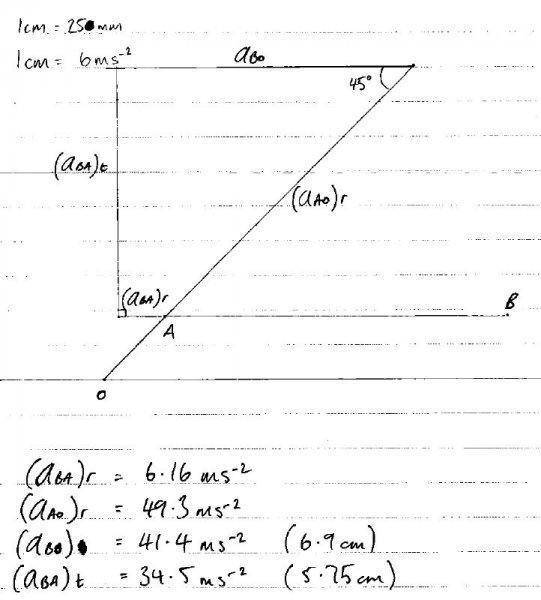 1cm = 250 mm
1cm = 6 ms⁻²
a_BO
45°
(a_BA)t
(a_AO)r
(a_BA)r
B
A
O
(a_BA)r = 6.16 ms⁻²
(a_AO)r = 49.3 ms⁻²
(a_BO) = 41.4 ms⁻² (6.9cm)
(a_BA)t = 34.5 ms⁻² (5.75cm)